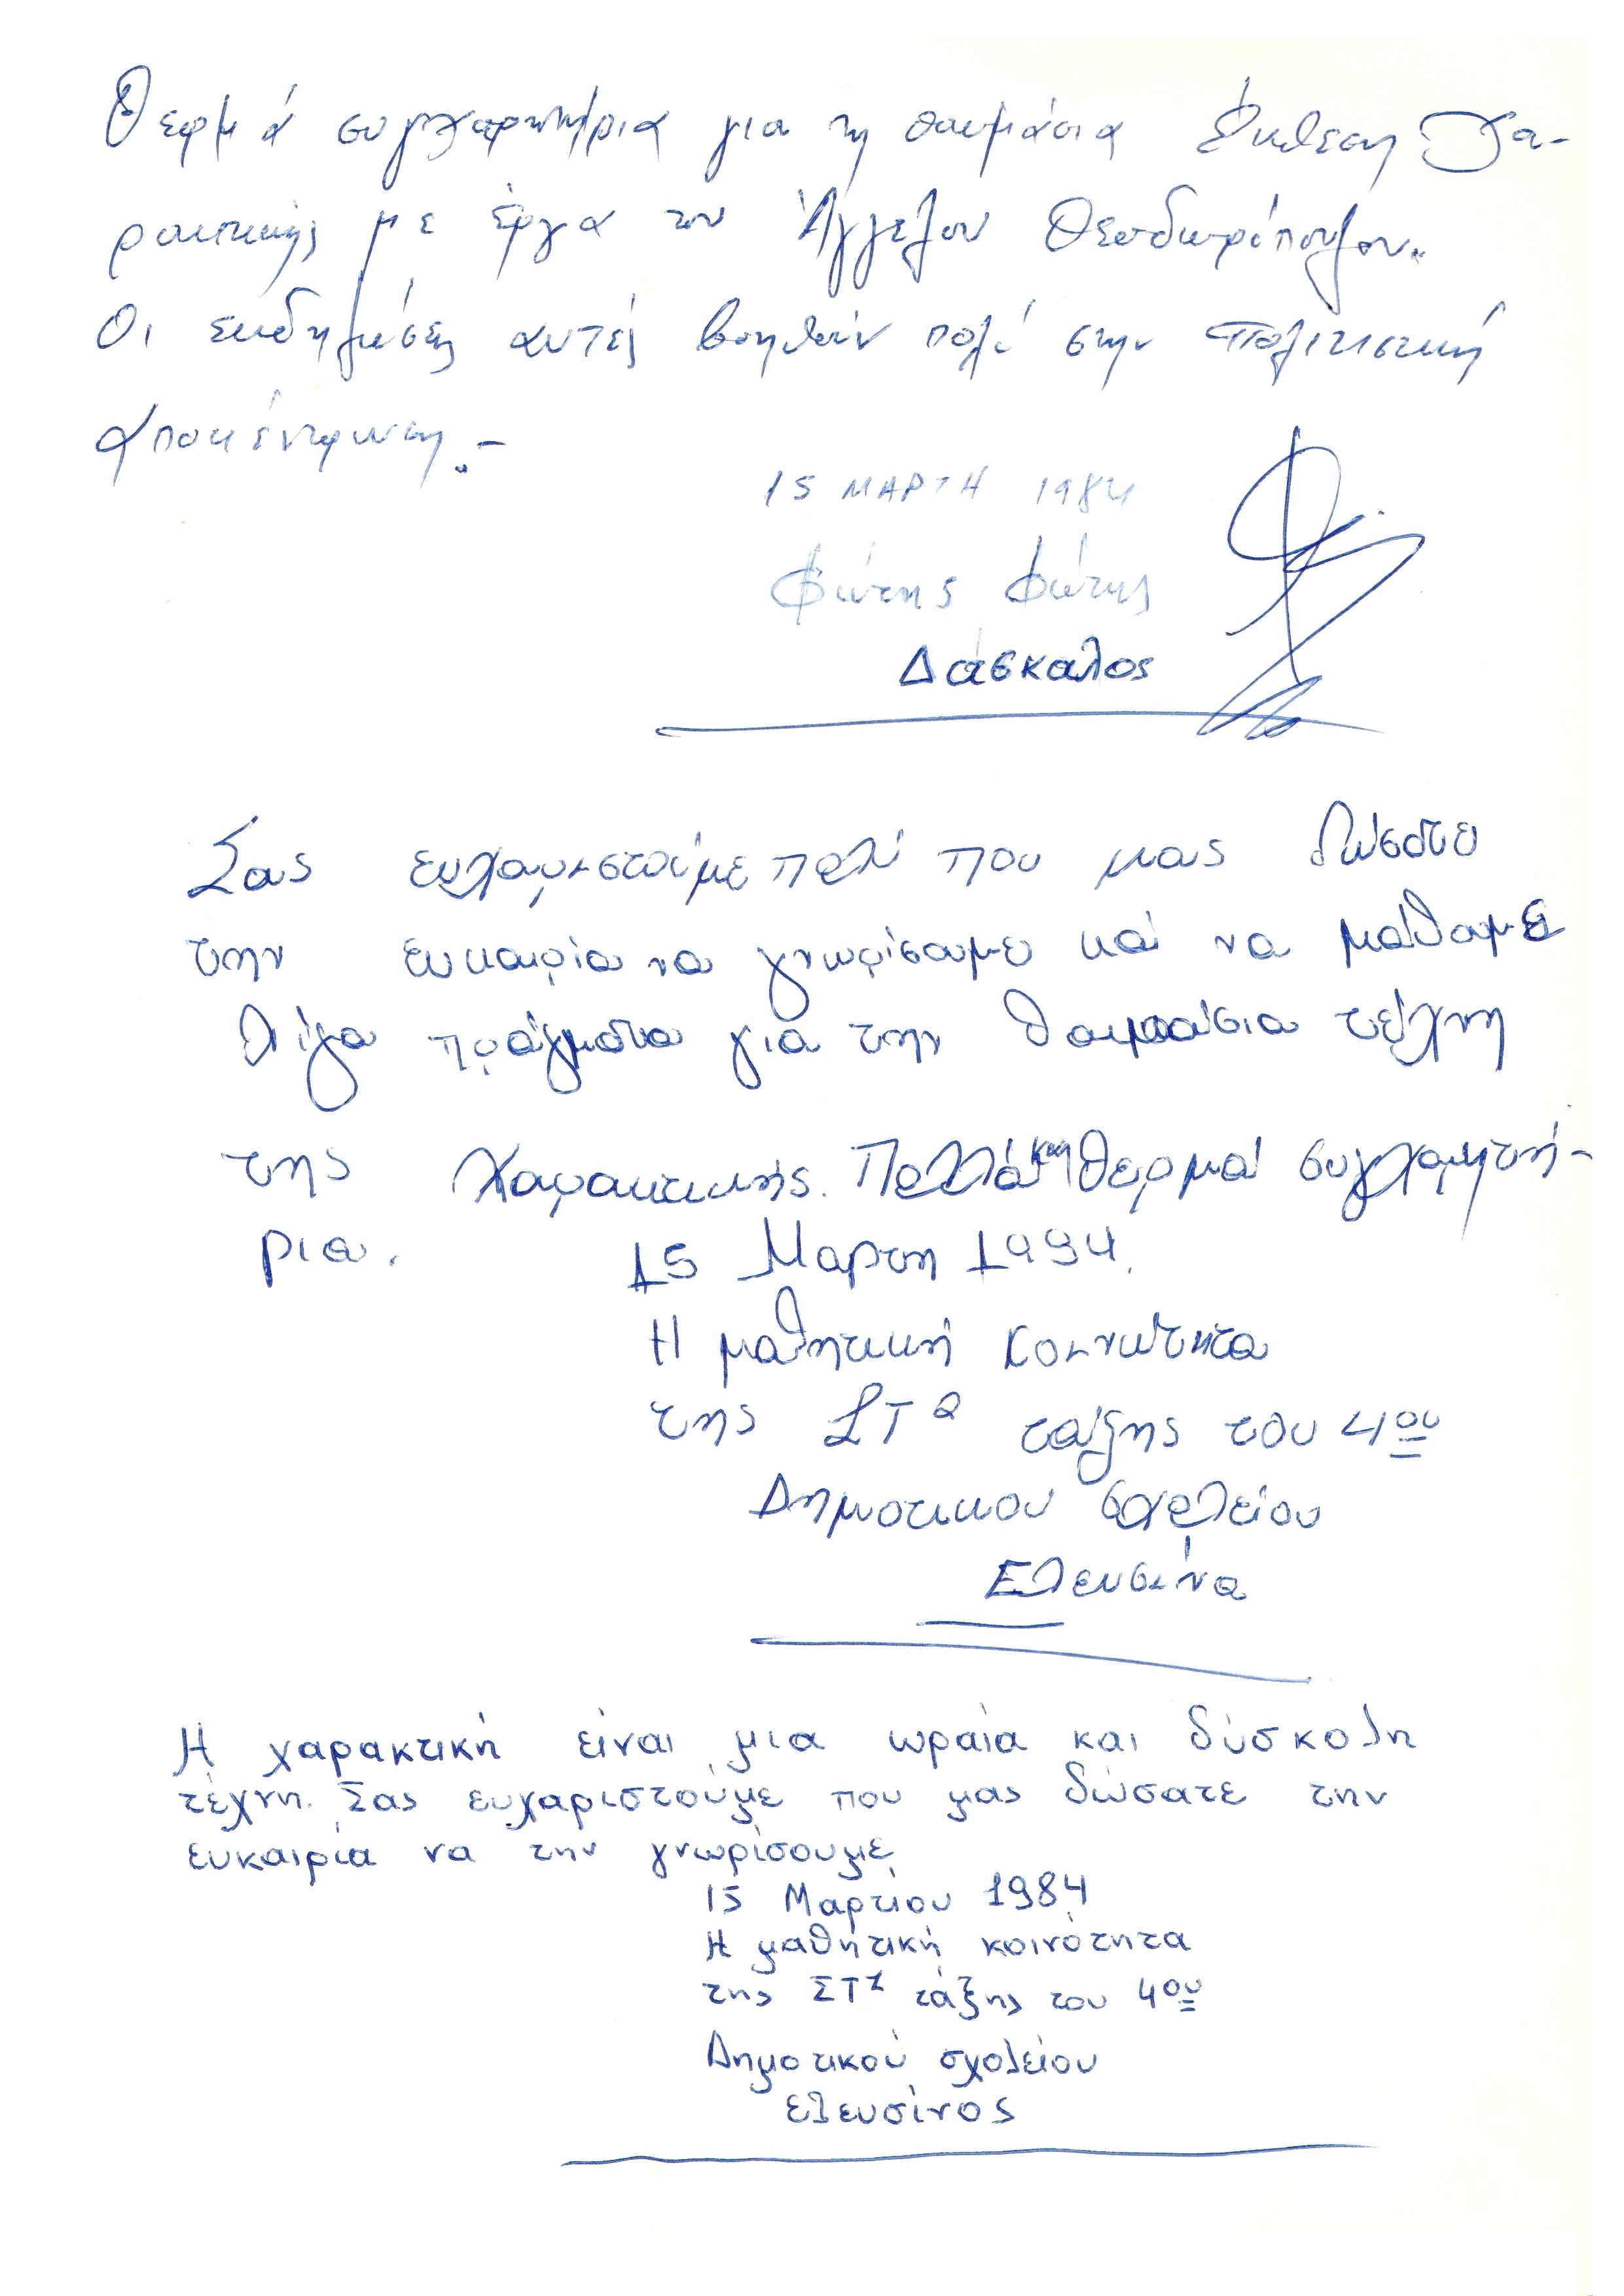 Θερμά συγχαρητήρια για τη θαυμάσια Έκθεση Χα-
ρακτικής με έργα του Άγγελου Θεοδωρόπουλου.
Οι εκδηλώσεις αυτές βοηθούν πολύ στην πολιτιστική
αποκέντρωση.-
15 ΜΑΡΤΗ 1984
Φώτης Φώτης
Δάσκαλος
Σας ευχαριστούμε πολύ που μας δώσατε
την ευκαιρία να γνωρίσουμε και να μάθουμε
λίγα πράγματα για την θαυμάσια τέχνη
της Χαρακτικής. Πολλά και θερμά συγχαρητή-
ρια. 15 Μαρτη 1994.
Η μαθητική Κοινώτητα
της ΣΤ τάξης του 4ου
Δημοτικού σχολείου
Ελευσίνα
Η χαρακτική είναι μια ωραία και δύσκολη
τέχνη. Σας ευχαριστούμε που μας δώσατε την
ευκαιρία να την γνωρίσουμε
15 Μαρτίου 1984
Η μαθητική κοινότητα
της ΣΤ1 τάξης του 4ου
Δημοτικού σχολείου
Ελευσίνος